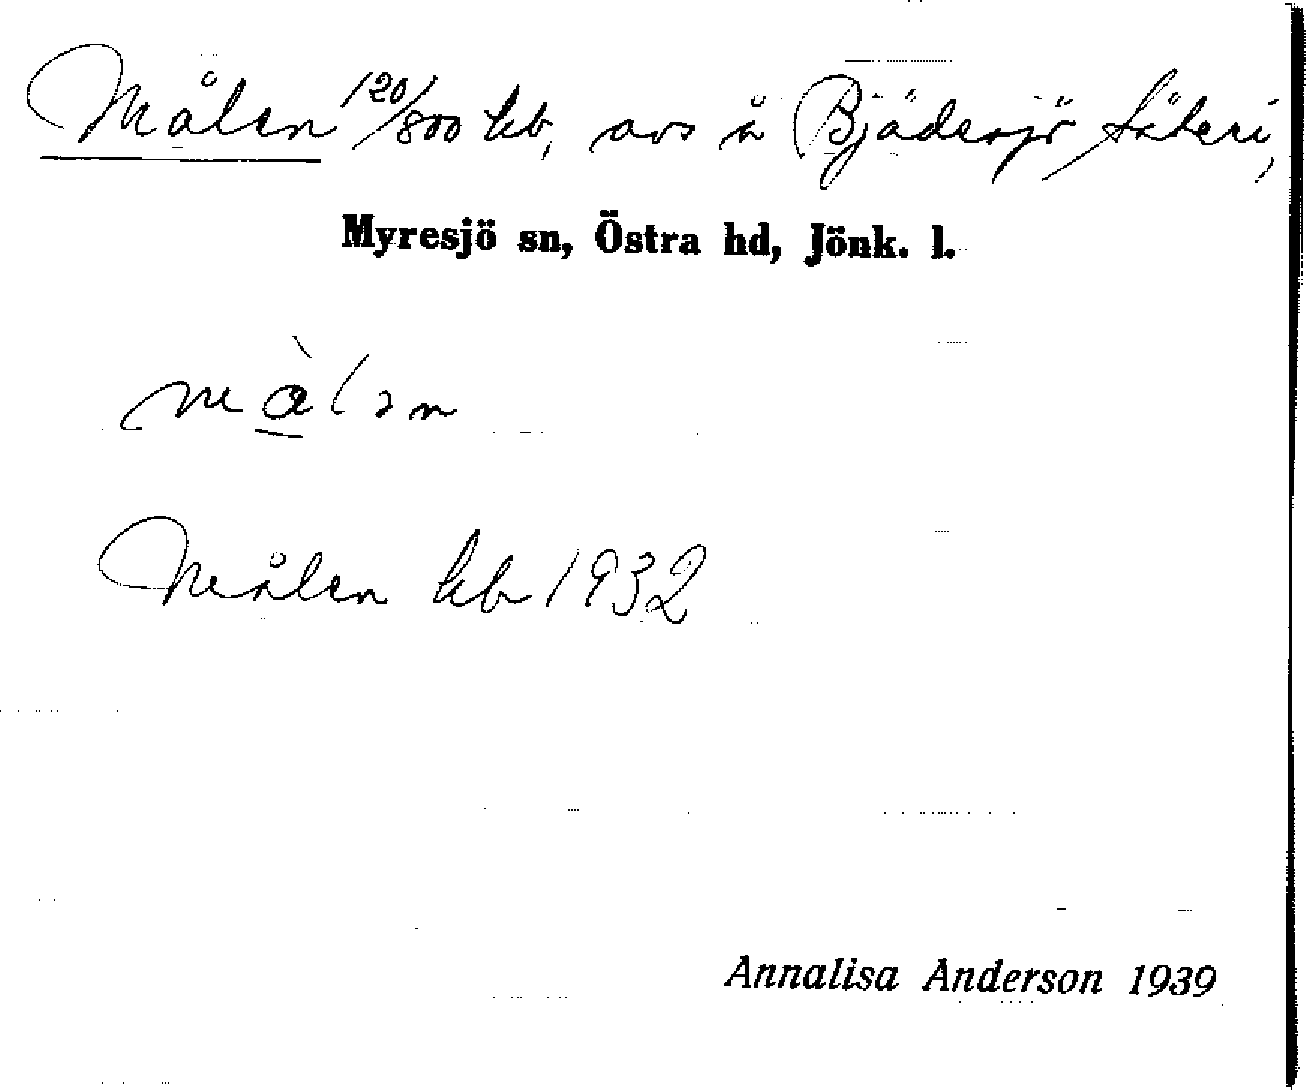 Målen 120/800 kb, avs å Bjädesjö säteri,
Myresjö sn, Östra hd, Jönk. l.
mà̱lən
Målen kb 1932
Annalisa Anderson 1939